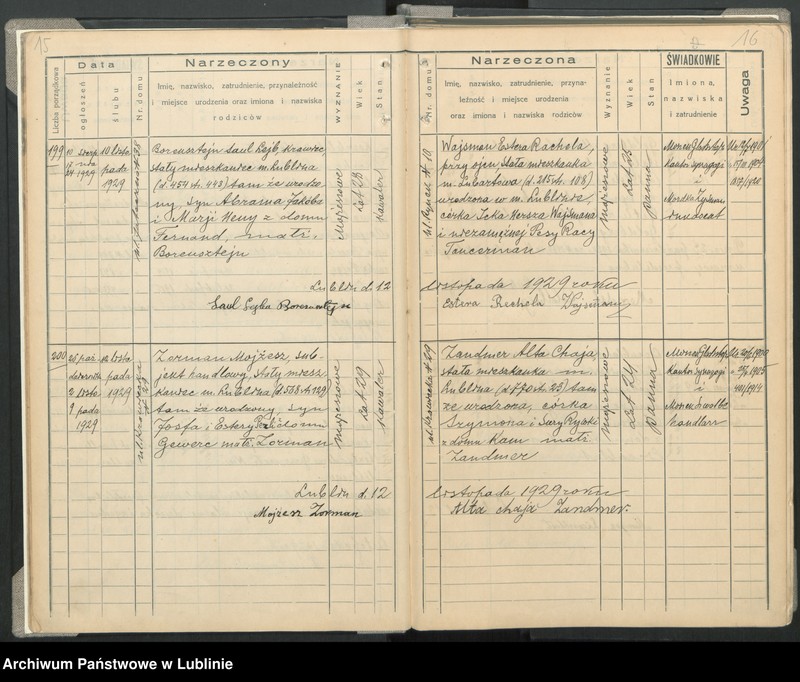 15
Liczba porządkowa
Data
ogłoszeń
ślubu
Nr. domu
Narzeczony
Imię, nazwisko, zatrudnienie, przynależność
i miejsce urodzenia oraz imiona i nazwiska
rodziców
WYZNANIE
Wiek
Stan
199
10 listo
pada
1929
Borensztejn Saul Lejb, krawiec,
stały mieszkaniec m. Lublina
(d. 454 st. 443) tam że urodzo
ny, syn Abrama Jakóba
i Marji Heny z domu
Fernand, małż.
Borensztejn
Mojżeszowe
Lat 28
Kawaler
Lublin d. 12
Saul Lejba Borensztejn
200
12 listo
pada
1929
1929
Zorman Mojżesz, sub-
jekt handlowy, stały miesz
kaniec m. Lublina (d. 538 st. 129)
tam że urodzony, syn
Josfa i Estery z domu
Gewerc małż. Zorman
Mojżeszowe
Lat 29
Kawaler
Lublin d. 12
Mojżesz Zorman
16
Nr. domu
Narzeczona
Imię, nazwisko, zatrudnienie, przyna-
leżność i miejsce urodzenia
oraz imiona i nazwiska rodziców
Wyznanie
Wiek
Stan
ŚWIADKOWIE
Imiona,
nazwiska
i zatrudnienie
Uwaga
ul. Rynek № 10
Wajsman Estera Rachela,
przy ojcu, stała mieszkanka
m. Lubartowa (d. 215 st. 108)
urodzona w m. Lublinie,
córka Icka Hersza Wajsmana
i niezamężnej Pesy Racy
Tancerman
Mojżeszowe
Lat 25
panna
Kantor synagogi
i
listopada 1929 roku
Estera Rachela Wajsman
Zandmer Alta Chaja,
stała mieszkanka m.
Lublina (d. 770 st. 23) tam
że urodzona, córka
Szymona i Sury Rywki
z domu Kam małż.
Zandmer
Mojżeszowe
Lat 24
panna
Kantor Synagogi
i
handlarz
listopada 1929 roku
Alta Chaja Zandmer
Archiwum Państwowe w Lublinie